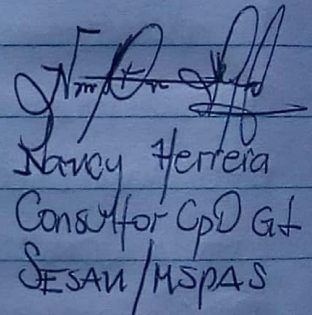 Nancy Herrera
Consultor CpD Gt
SESAN/MSPAS